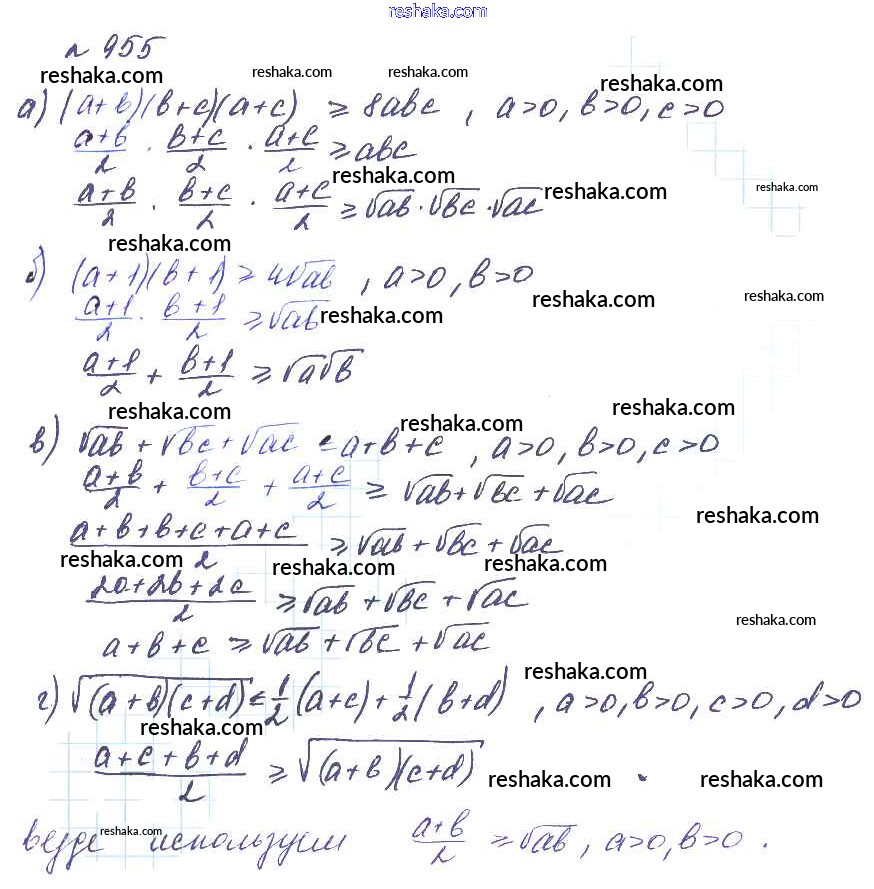 reshaka.com
№ 955
reshaka.com reshaka.com reshaka.com reshaka.com
а) (a+b)(b+c)(a+c) ≥ 8abc , a>0, b>0, c>0
(a+b)/2 · (b+c)/2 · (a+c)/2 ≥ abc
reshaka.com reshaka.com reshaka.com
(a+b)/2 · (b+c)/2 · (a+c)/2 ≥ √ab · √bc · √ac
reshaka.com
б) (a+1)(b+1) ≥ 4√ab , a>0, b>0
reshaka.com reshaka.com
(a+1)/2 · (b+1)/2 ≥ √ab
reshaka.com
(a+1)/2 + (b+1)/2 ≥ √a√b
reshaka.com reshaka.com reshaka.com
в) √ab + √bc + √ac ≤ a+b+c , a>0, b>0, c>0
(a+b)/2 + (b+c)/2 + (a+c)/2 ≥ √ab + √bc + √ac
reshaka.com
(a+b+b+c+a+c)/2 ≥ √ab + √bc + √ac
reshaka.com reshaka.com reshaka.com
(2a+2b+2c)/2 ≥ √ab + √bc + √ac
reshaka.com
a+b+c ≥ √ab + √bc + √ac
reshaka.com
г) √((a+b)(c+d)) ≤ 1/2 (a+c) + 1/2 (b+d) , a>0, b>0, c>0, d>0
reshaka.com
(a+c+b+d)/2 ≥ √((a+b)(c+d))
reshaka.com reshaka.com
везде используем (a+b)/2 ≥ √ab , a>0, b>0 .
reshaka.com